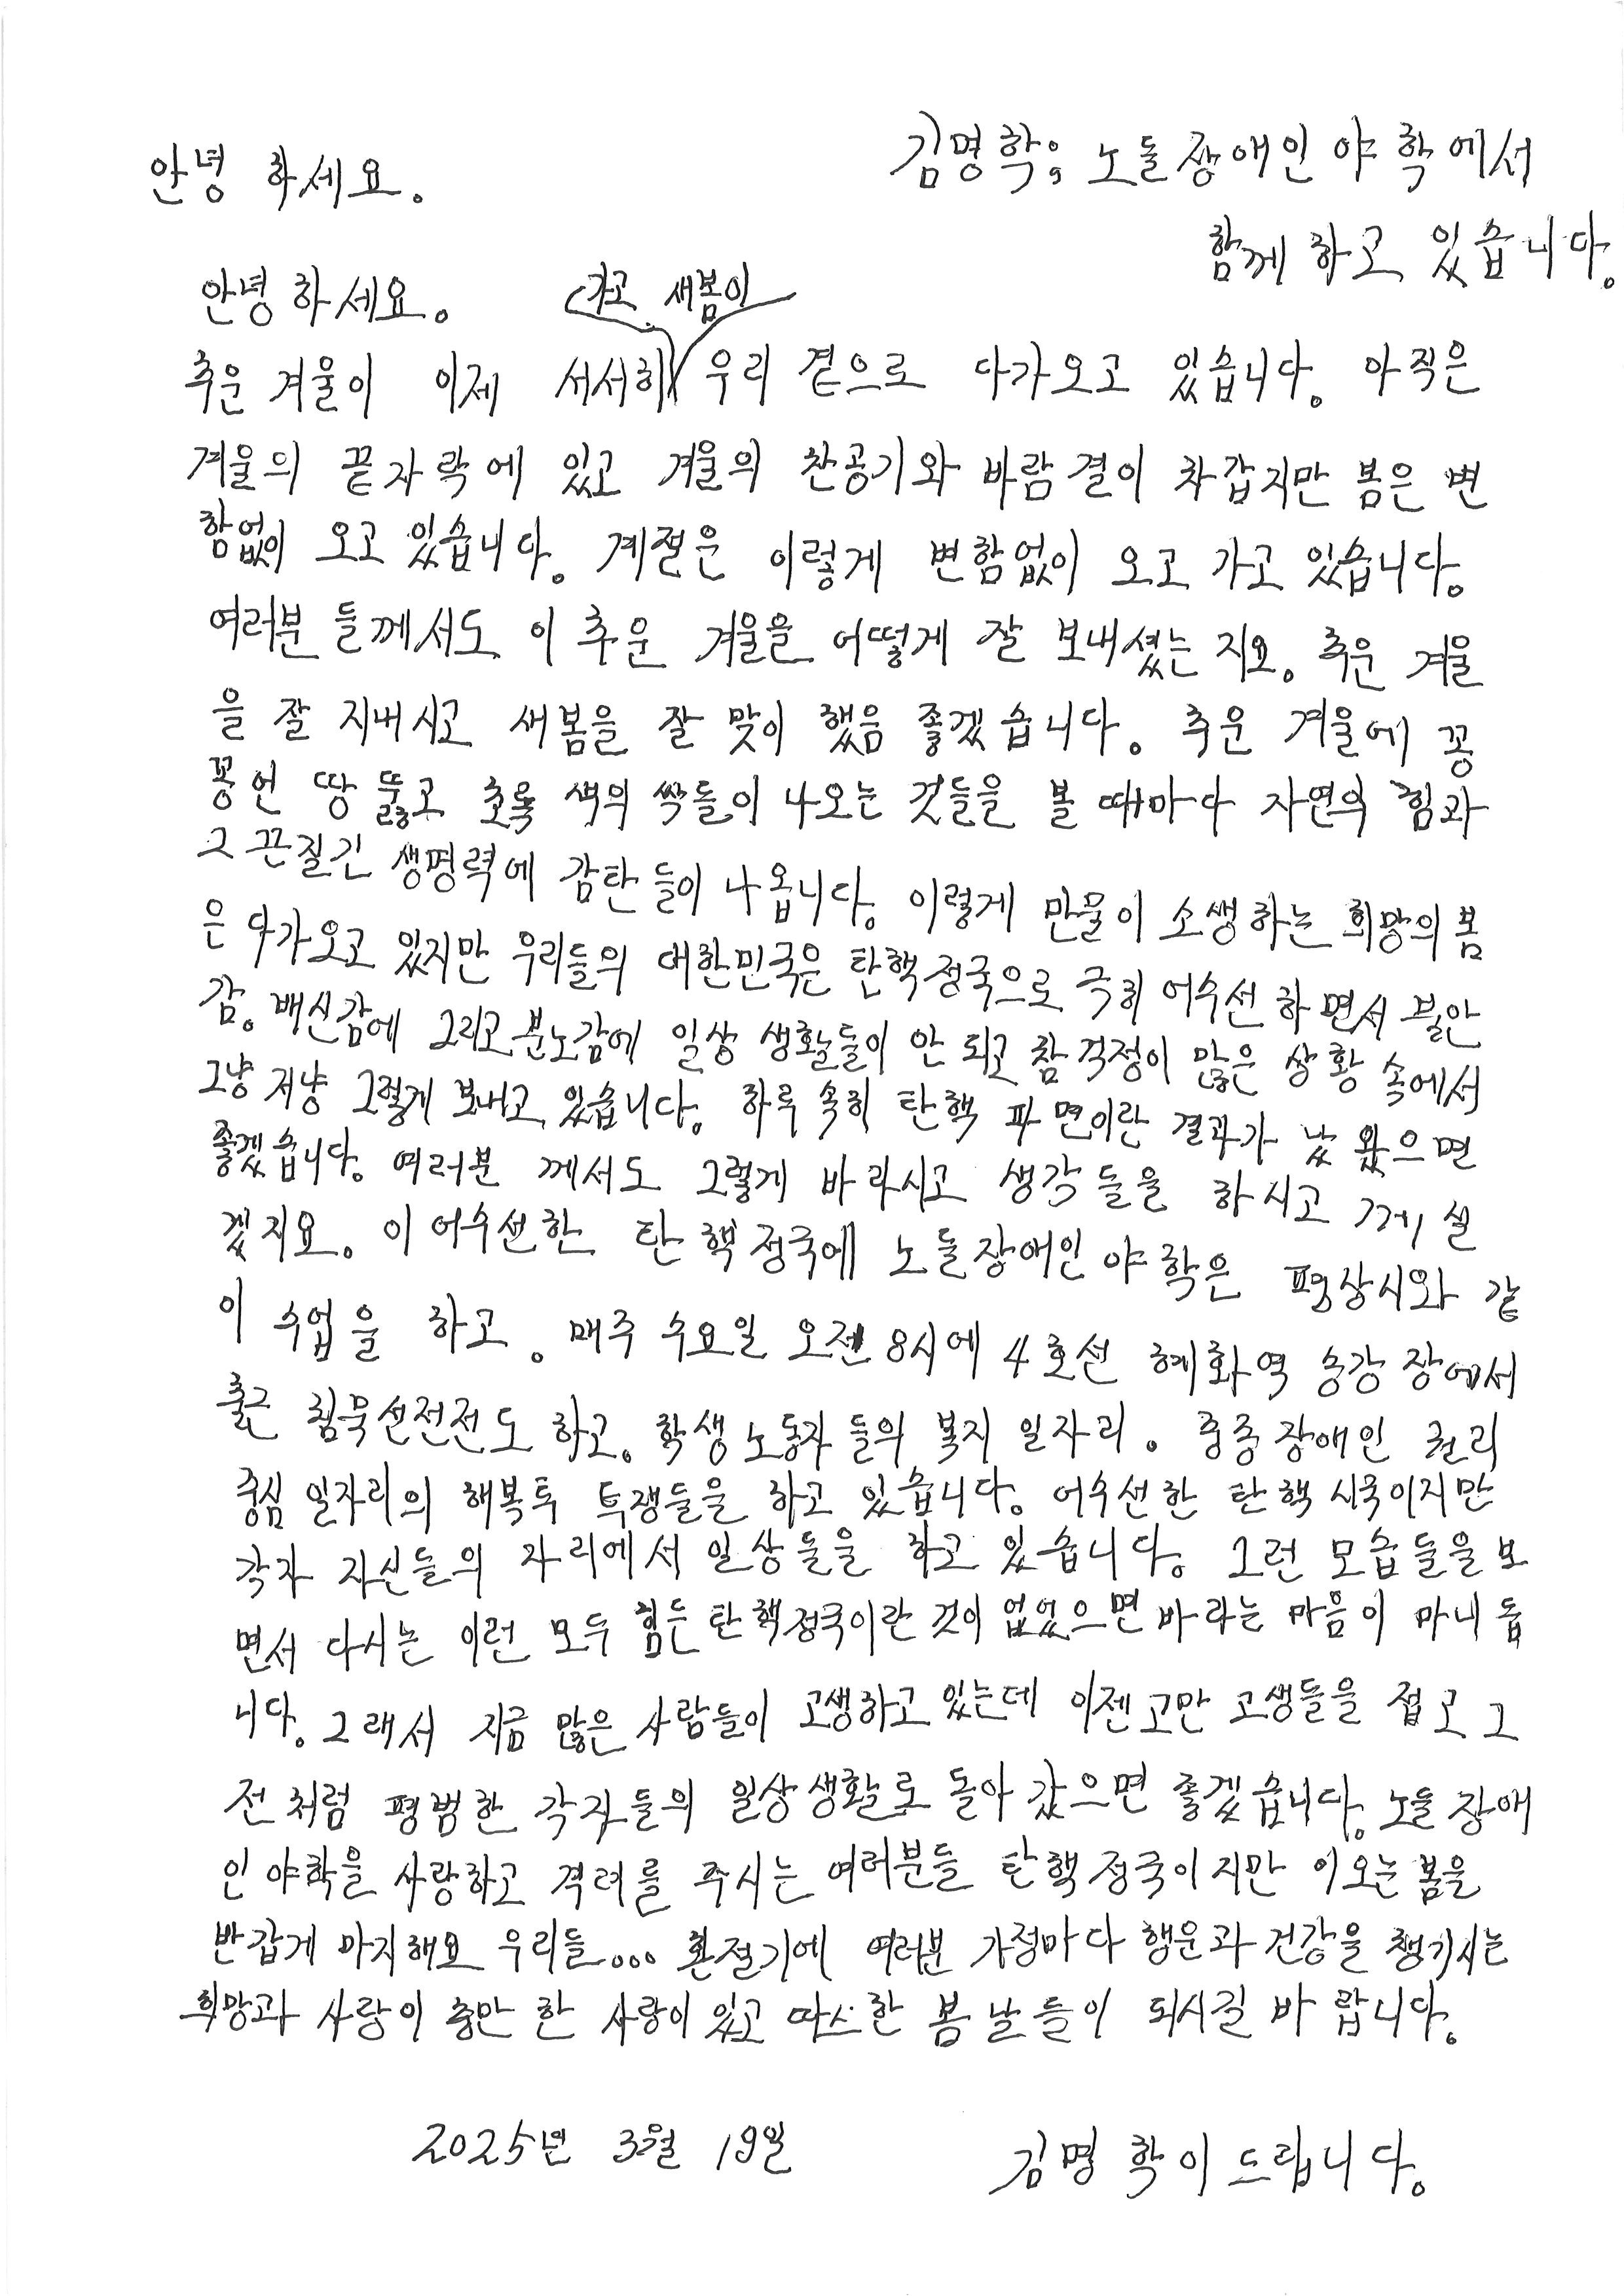 안녕 하세요.
김명학: 노들장애인 야학에서
함께 하고 있습니다.
안녕하세요.
가고 새봄이
추운 겨울이 이제 서서히 우리 곁으로 다가오고 있습니다. 아직은
겨울의 끝자락에 있고 겨울의 찬공기와 바람결이 차갑지만 봄은 변
함없이 오고 있습니다. 계절은 이렇게 변함없이 오고 가고 있습니다.
여러분 들께서도 이 추운 겨울을 어떻게 잘 보내셨는 지요. 추운 겨울
을 잘 지내시고 새봄을 잘 맞이 했음 좋겠습니다. 추운 겨울에 꽁
꽁언 땅 뚫고 초록 색의 싹들이 나오는 것들을 볼 때마다 자연의 힘과
그 끈질긴 생명력에 감탄들이 나옵니다. 이렇게 만물이 소생하는 희망의 봄
은 다가오고 있지만 우리들의 대한민국은 탄핵정국으로 극히 어수선 하면서 불안
감. 배신감에 그리고 분노감에 일상 생활들이 안 되고 참 걱정이 많은 상황 속에서
그냥 저냥 그렇게 보내고 있습니다. 하루 속히 탄핵 파면이란 결과가 났 왔으면
좋겠습니다. 여러분 께서도 그렇게 바라시고 생각들을 하시고 계실
겠지요. 이 어수선한 탄핵정국에 노들장애인 야학은 평상시와 같
이 수업을 하고. 매주 수요일 오전 8시에 4호선 혜화역 승강장에서
출근 침묵선전전도 하고. 학생 노동자 들의 복지 일자리. 중증장애인 권리
중심 일자리의 해복투 투쟁들을 하고 있습니다. 어수선한 탄핵 시국이지만
각자 자신들의 자리에서 일상들을 하고 있습니다. 그런 모습들을 보
면서 다시는 이런 모두 힘든 탄핵정국이란 것이 없었으면 바라는 마음이 마니 듭
니다. 그래서 지금 많은 사람들이 고생하고 있는데 이젠 고만 고생들을 접고 그
전처럼 평범한 각자들의 일상생활로 돌아 갔으면 좋겠습니다. 노들 장애
인 야학을 사랑하고 격려를 주시는 여러분들 탄핵정국이지만 이오는 봄을
반갑게 마지해요 우리들... 환절기에 여러분 가정마다 행운과 건강을 챙기시는
희망과 사랑이 충만 한 사랑이 있고 따스한 봄 날들이 되시길 바랍니다.
2025년 3월 19일
김명학이드립니다.